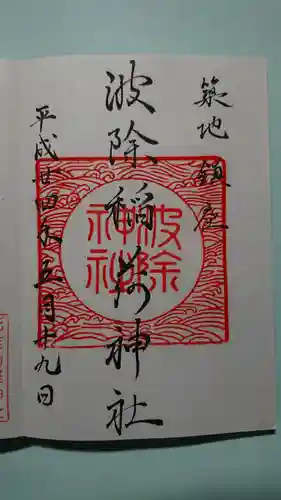 築地鎮座
波除稲荷神社
平成廿四年五月十九日
波除
神社